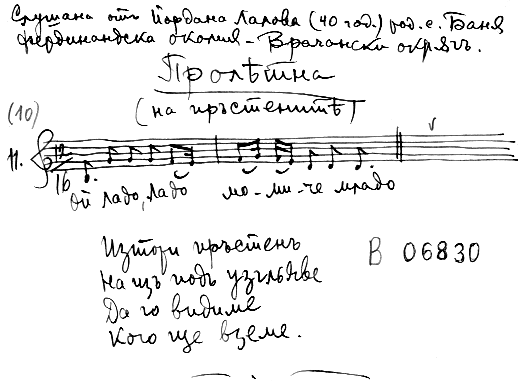 Слушана отъ Йордана Лалова (40 год.) род. с. Баня
фердинандска околия - Врачански окрѫгъ.
Пролѣтна
(10)
(на пръстенитѣ)
11.
12
16
ой Ладо, Ладо мо-ми-че младо
Изтъри пръстенъ
На щъ подъ узглавье
Да го видиме
Кого ще вземе.
В 06830